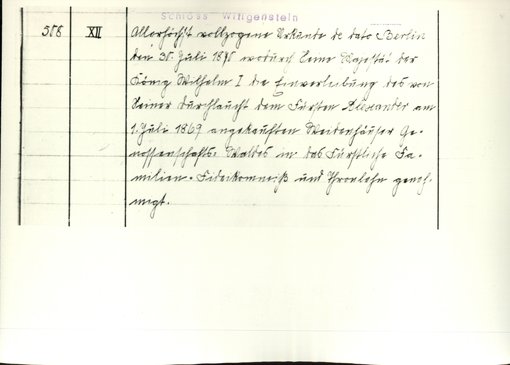 Schloss Wittgenstein
508 XII Allerhöchst vollzogene Urkunde de dato Berlin
den 30. Juli 1870 wodurch Seine Majestät der
König Wilhelm I die Einverleibung des von
Seiner Durchlaucht dem Fürsten Alexander am
1. Juli 1869 angekauften Weidenhäuser Ge-
nossenschafts-Waldes in das Fürstliche Fa-
milien-Fideikommiß und Thronlehn geneh-
migt.